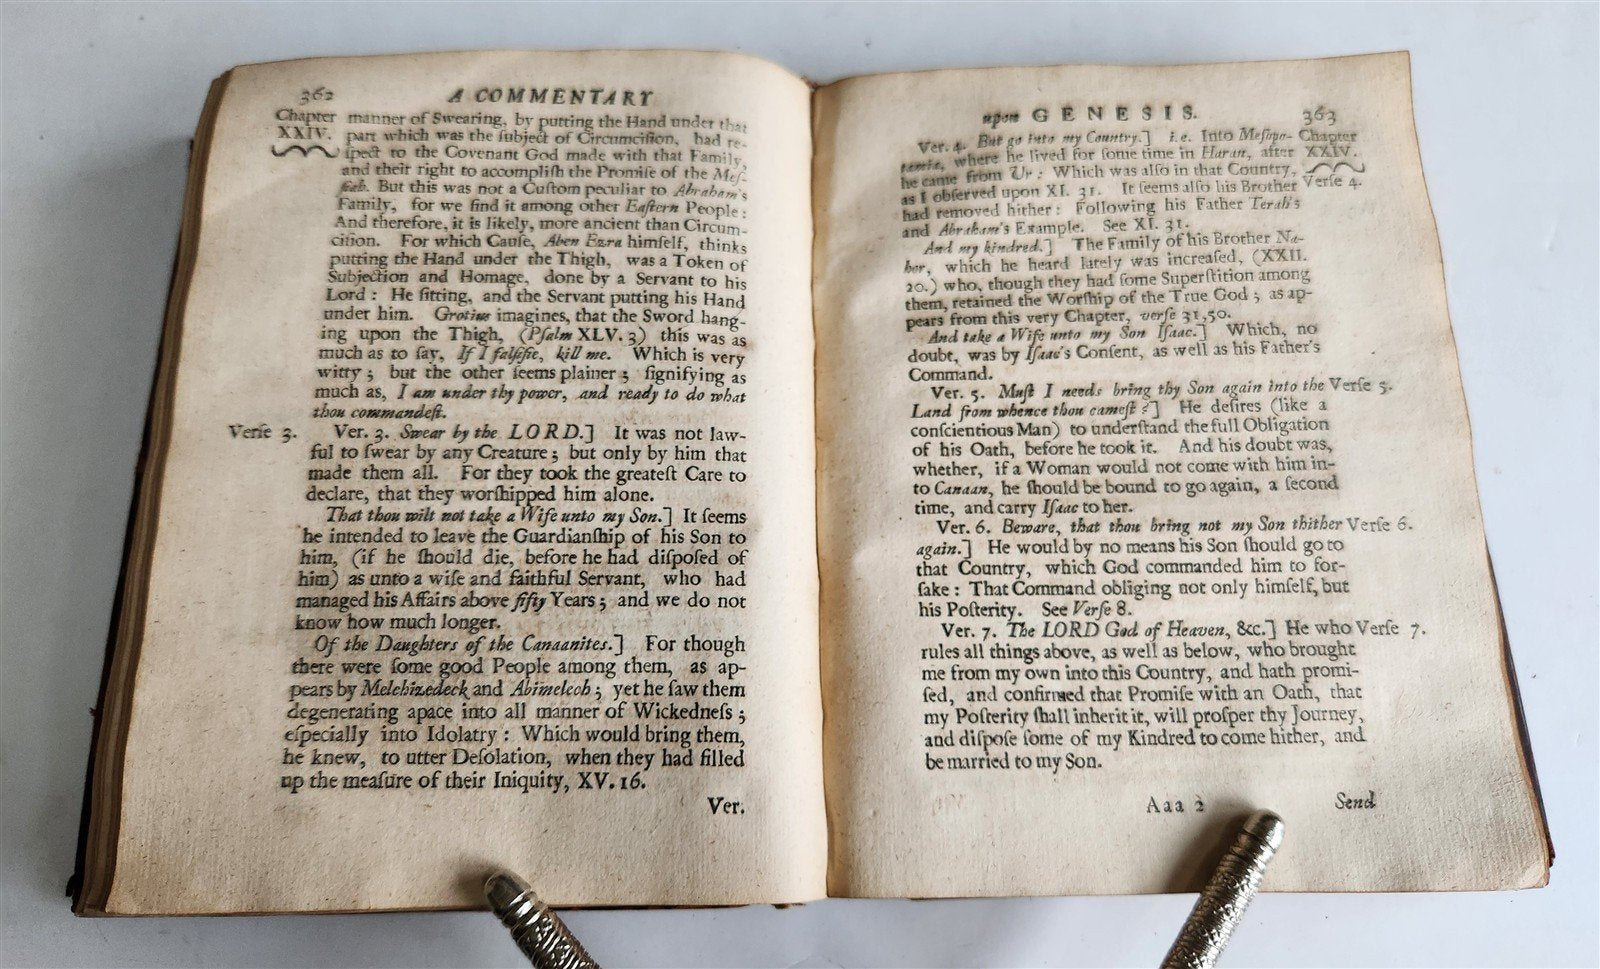 362
A COMMENTARY
Chapter
XXIV.
manner of Swearing, by putting the Hand under that
part which was the ſubject of Circumciſion, had re-
ſpect to the Covenant God made with that Family,
and their right to accompliſh the Promiſe of the Meſ-
ſiah. But this was not a Cuſtom peculiar to Abraham's
Family, for we find it among other Eaſtern People:
And therefore, it is likely, more ancient than Circum-
ciſion. For which Cauſe, Aben Ezra himſelf, thinks
putting the Hand under the Thigh, was a Token of
Subjection and Homage, done by a Servant to his
Lord: He ſitting, and the Servant putting his Hand
under him. Grotius imagines, that the Sword hang-
ing upon the Thigh, (Pſalm XLV. 3) this was as
much as to ſay, If I falſifie, kill me. Which is very
witty; but the other ſeems plainer; ſignifying as
much as, I am under thy power, and ready to do what
thou commandeſt.
Verſe 3.
Ver. 3. Swear by the LORD.] It was not law-
ful to ſwear by any Creature; but only by him that
made them all. For they took the greateſt Care to
declare, that they worſhipped him alone.
That thou wilt not take a Wife unto my Son.] It ſeems
he intended to leave the Guardianſhip of his Son to
him, (if he ſhould die, before he had diſpoſed of
him) as unto a wiſe and faithful Servant, who had
managed his Affairs above fifty Years; and we do not
know how much longer.
Of the Daughters of the Canaanites.] For though
there were ſome good People among them, as ap-
pears by Melchizedeck and Abimelech; yet he ſaw them
degenerating apace into all manner of Wickedneſs;
eſpecially into Idolatry: Which would bring them,
he knew, to utter Deſolation, when they had filled
up the meaſure of their Iniquity, XV. 16.
Ver.
upon GENESIS.
363
Ver. 4. But go into my Country.] i.e. Into Meſopo-
tamia, where he lived for ſome time in Haran, after
he came from Ur: Which was alſo in that Country,
as I obſerved upon XI. 31. It ſeems alſo his Brother
had removed hither: Following his Father Terah's
and Abraham's Example. See XI. 31.
Chapter
XXIV.
Verſe 4.
And my kindred.] The Family of his Brother Na-
hor, which he heard lately was increaſed, (XXII.
20.) who, though they had ſome Superſtition among
them, retained the Worſhip of the True God; as ap-
pears from this very Chapter, verſe 31,50.
And take a Wife unto my Son Iſaac.] Which, no
doubt, was by Iſaac's Conſent, as well as his Father's
Command.
Ver. 5. Muſt I needs bring thy Son again into the
Verſe 5.
Land from whence thou cameſt?] He deſires (like a
conſcientious Man) to underſtand the full Obligation
of his Oath, before he took it. And his doubt was,
whether, if a Woman would not come with him in-
to Canaan, he ſhould be bound to go again, a ſecond
time, and carry Iſaac to her.
Ver. 6. Beware, that thou bring not my Son thither
Verſe 6.
again.] He would by no means his Son ſhould go to
that Country, which God commanded him to for-
ſake: That Command obliging not only himſelf, but
his Poſterity. See Verſe 8.
Ver. 7. The LORD God of Heaven, &c.] He who
Verſe 7.
rules all things above, as well as below, who brought
me from my own into this Country, and hath promi-
ſed, and confirmed that Promiſe with an Oath, that
my Poſterity ſhall inherit it, will proſper thy Journey,
and diſpoſe ſome of my Kindred to come hither, and
be married to my Son.
Aaa 2
Send